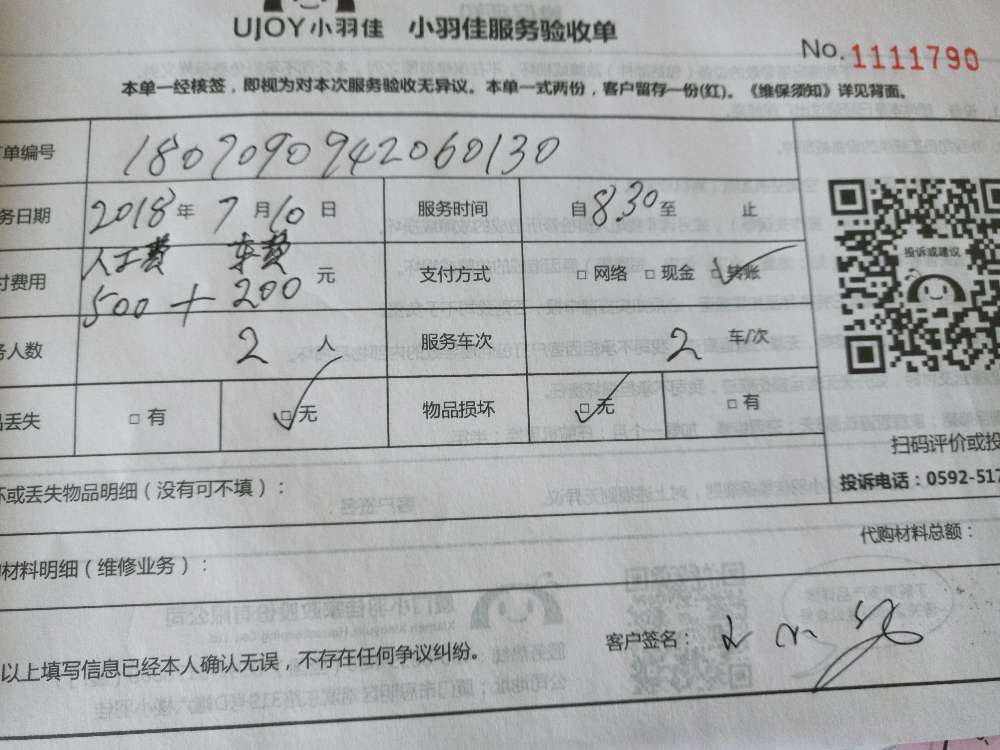 UJOY小羽佳 小羽佳服务验收单
No. 1111790
本单一经核签，即视为对本次服务验收无异议。本单一式两份，客户留存一份(红)。《维保须知》详见背面。
单编号 1807090942060130
务日期 2018年7月10日 服务时间 自8.30至 止
付费用 人工费 500 + 车费 200 元 支付方式 □网络 □现金 ☑转账
务人数 2 人 服务车次 2 车/次
品丢失 □有 ☑无 物品损坏 ☑无 □有
投诉或建议
扫码评价或投
投诉电话：0592-517
坏或丢失物品明细（没有可不填）：
代购材料总额：
材料明细（维修业务）：
以上填写信息已经本人确认无误，不存在任何争议纠纷。
客户签名：